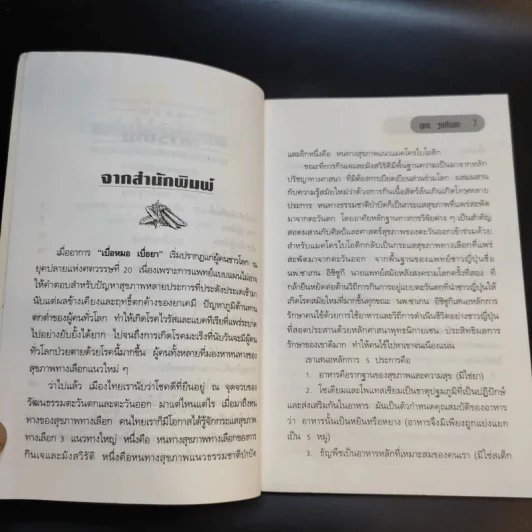 จากสำนักพิมพ์
เมื่ออาการ "เบื่อหมอ เบื่อยา" เริ่มปรากฏแก่ผู้คนชาวโลก ณ
ยุคปลายแห่งศตวรรษที่ 20 เนื่องเพราะการแพทย์แบบแผนไม่อาจ
ให้คำตอบสำหรับปัญหาสุขภาพหลายประการที่ประดังประเดเข้ามา
นับแต่ผลข้างเคียงและฤทธิ์ตกค้างของยาเคมี ปัญหาภูมิต้านทาน
ตกต่ำของผู้คนทั่วโลก ทำให้เกิดโรคไวรัสและแบคทีเรียที่แพร่ระบาด
ไปอย่างยับยั้งได้ยาก ไปจนถึงการเกิดโรคมะเร็งที่นับวันจะมีผู้คน
ทั่วโลกป่วยตายด้วยโรคนี้มากขึ้น ผู้คนทั้งหลายที่มองหาหนทางของ
สุขภาพทางเลือกแนวใหม่ ๆ
ว่าไปแล้ว เมืองไทยเรานับว่าโชคดีที่ยืนอยู่ ณ จุดจวบของ
วัฒนธรรมตะวันตกและตะวันออก มาแต่ไหนแต่ไร เมื่อมาถึงหน
ทางของสุขภาพทางเลือก คนไทยเราก็มีโอกาสได้รู้จักกระแสสุขภาพ
ทางเลือก 3 แนวทางใหญ่ หนึ่งคือ หนทางสุขภาพทางเลือกของการ
กินเจและมังสวิรัติ หนึ่งคือหนทางสุขภาพแนวธรรมชาติบำบัด
7
และอีกหนึ่งคือ หนทางสุขภาพแนวแมคโครไบโอติก
ขณะที่การกินเจและมังสวิรัติมีพื้นฐานความเป็นมาจากหลัก
ปรัชญาทางศาสนา ที่มีต่อการเบียดเบียนส่วนร่วมโลก ผสมผสาน
กับความรู้สมัยใหม่ว่าด้วยการกินเนื้อสัตว์ล้นเกินเกิดโทษหลาย
ประการ หนทางธรรมชาติบำบัดก็เป็นกระแสสุขภาพที่แพร่สะพัด
มาจากตะวันตก โดยอาศัยหลักฐานทางการวิจัยต่าง ๆ เป็นสำคัญ
สอดผสานกับศิลป์และศาสตร์สุขภาพของตะวันออกเข้าร่วมด้วย
สำหรับแมคโครไบโอติกกลับเป็นกระแสสุขภาพทางเลือกที่แพร่
สะพัดมาจากตะวันออก จากพื้นฐานของแพทย์ชาวญี่ปุ่นชื่อ
นพ.ซาเกน อิชิซูกิ นายแพทย์สมัยหลังสงครามโลกครั้งที่สอง ที่
กล้ายืนหยัดต่อต้านวิถีการกินอยู่แบบตะวันตกที่นำชาวญี่ปุ่นให้
เกิดโรคสมัยใหม่ที่มากขึ้นทุกขณะ นพ.อิชิซูกิเสนอหลักการ
รักษาคนไข้ด้วยการใช้อาหารและวิถีการดำเนินชีวิตอย่างชาวญี่ปุ่น
ที่สอดประสานด้วยหลักศาสนาพุทธนิกายเซน ประสิทธิผลการ
รักษาของเขาดีมาก ทำให้คนไข้ไปหาเขาจนเนืองแน่น
เขาเสนอหลักการ 5 ประการคือ
1. อาหารคือรากฐานของสุขภาพและความสุข (มิใช่ยา)
2. โซเดียมและโพแทสเซียมเป็นธาตุปฐมภูมิที่เป็นปฏิปักษ์
และส่งเสริมกันในอาหาร มันเป็นตัวกำหนดคุณสมบัติของอาหาร
ว่า อาหารนั้นเป็นหยินหรือหยาง (อาหารจึงมิเพียงถูกแบ่งแยก
เป็น 5 หมู่)
3. ธัญพืชเป็นอาหารหลักที่เหมาะสมของคนเรา (มิใช่สเต็ก